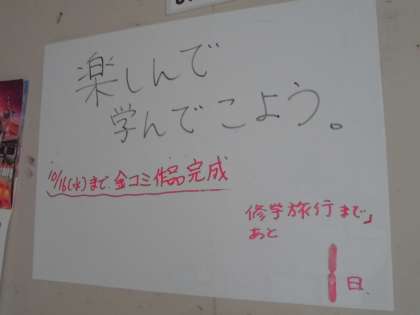 楽しんで
学んでこよう。
10/16(水)まで 金コミ作品完成
修学旅行まで
あと
1日